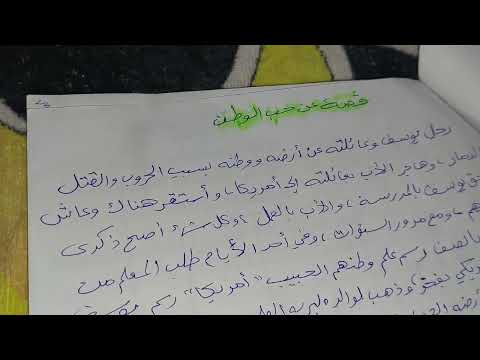 قصة عن حب الوطن
رحل يوسف وعائلته عن أرضه ووطنه بسبب الحروب والقتل
الدمار، وهاجر الأب بعائلته إلى أمريكا، وأستقر هناك وعاش
يوسف بالمدرسة، والأب بالعمل، وكل شئ أصبح ذكرى
ومع مرور السنوات، وفي أحد الأيام طلب المعلم من
بالصف رسم علم وطنهم الحبيب "أمريكا" رسم
بفخر، وذهب لوالده ليريه
أرضه